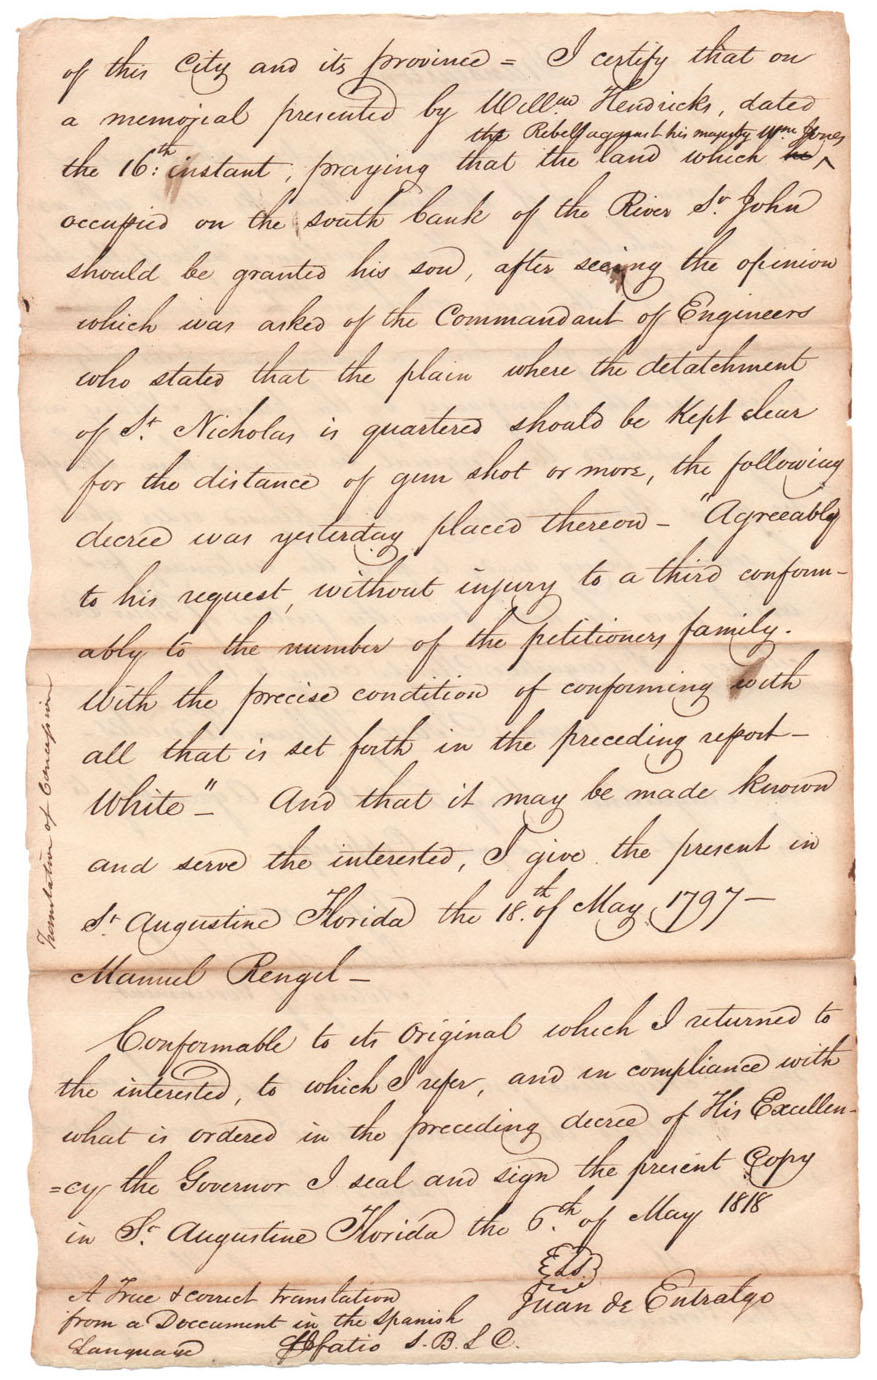 of this City and its province = I certify that on
a memorial presented by Willm Hendricks, dated
the Rebel against his majesty Wm Jones
the 16:th instant, praying that the land which he ^
occupied on the south bank of the River St. John
should be granted his son, after seeing the opinion
which was asked of the Commandant of Engineers
who stated that the plain where the detatchment
of St. Nicholas is quartered should be kept clear
for the distance of gun shot or more, the following
decree was yesterday placed thereon – "Agreeably
to his request, without injury to a third conform-
ably to the number of the petitioners family.
With the precise condition of conforming with
all that is set forth in the preceding report –
White" – And that it may be made known
and serve the interested, I give the present in
St. Augustine Florida the 18.th of May 1797 –
Manuel Rengil –
Conformable to its Original which I returned to
the interested, to which I refer, and in compliance with
what is ordered in the preceding decree of His Excellen-
=cy the Governor I seal and sign the present Copy
in St. Augustine Florida the 6.th of May 1818
Juan de Entralgo
A True & correct translation
from a Doccument in the spanish
Language Fatio S.B.L.C.
Translation of Concession